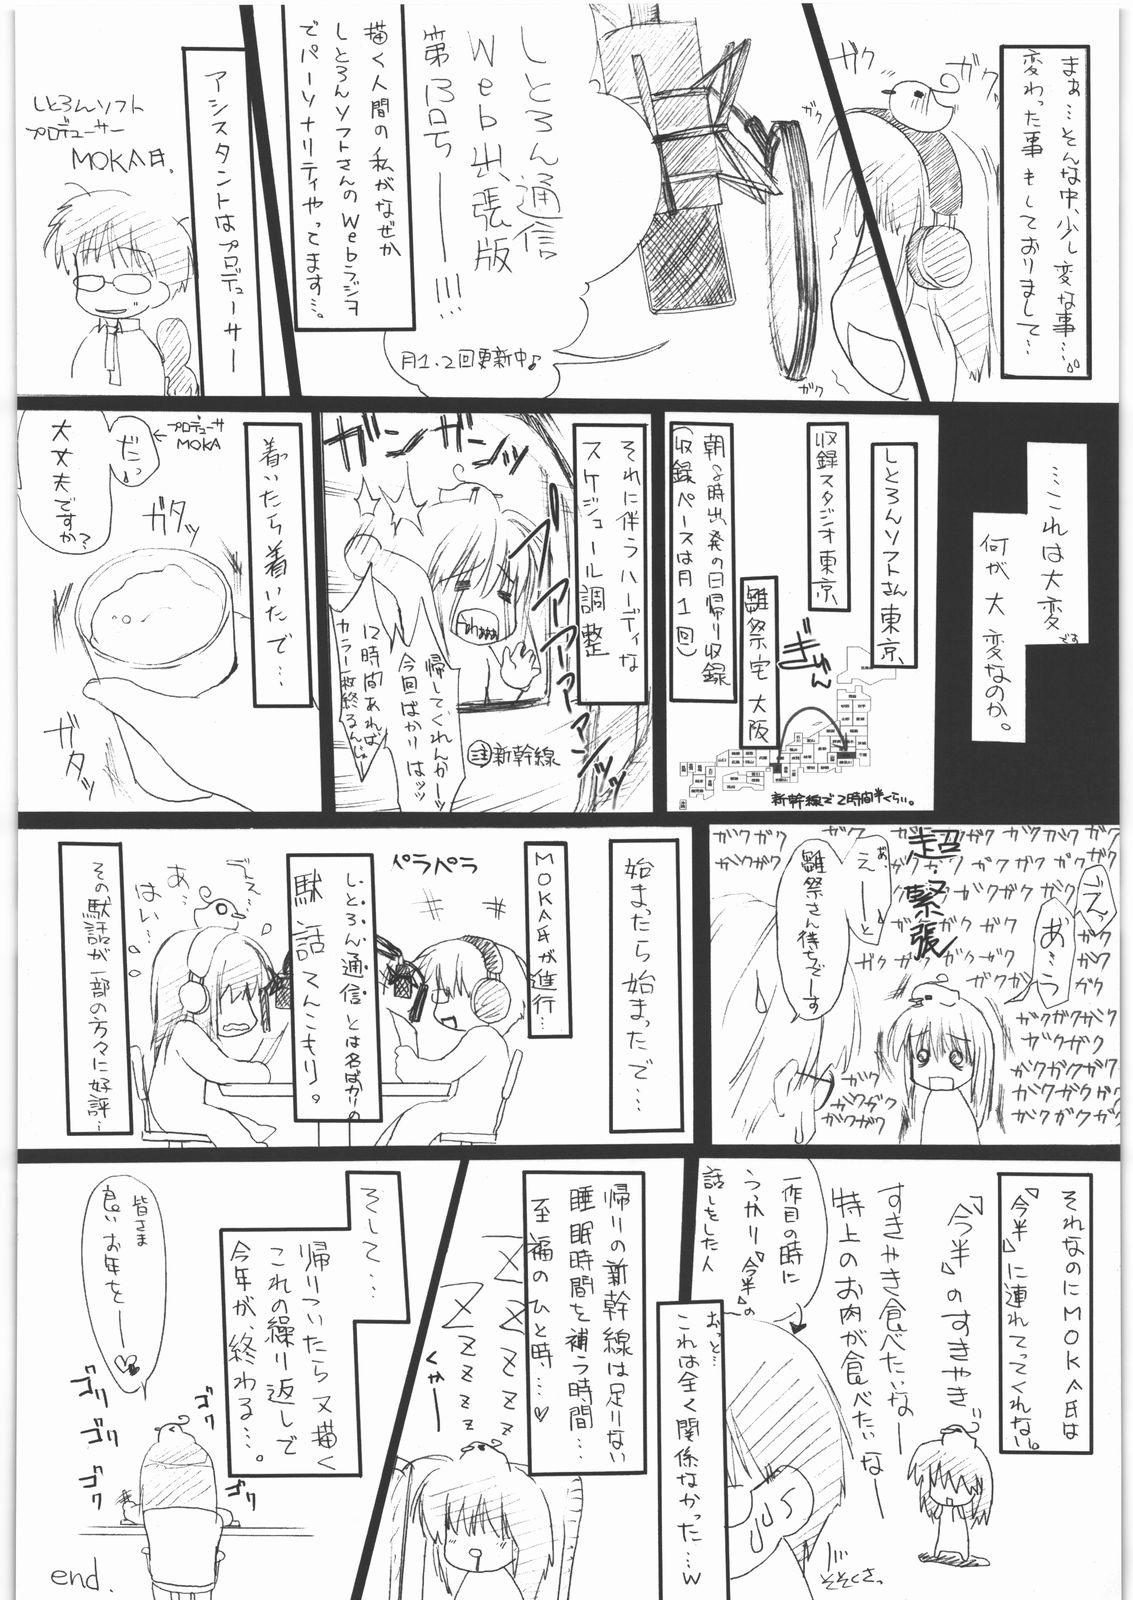 まぁ…そんな中、少し変な事…。
変わった事もしておりまして…
ガク
ガク
ガク
ガク
しとろん通信
Web出張版
第13号ーー!!!
月1、2回更新中♪
描く人間の私がなぜか
しとろんソフトさんのWebラジヲ
でパーソナリティやってます…。
アシスタントはプロデューサー
しとろんソフト
プロデューサー
MOKA氏.
…これは大変です
何が大変なのか。
しとろんソフトさん東京、
収録スタジオ東京、
ぎゅん
雛祭宅 大阪
朝8時出発の日帰り収録
(収録ペースは月1回)
新幹線で2時間半くらい。
それに伴うハーディな
スケジュール調整
ガンガンッ
アーアーアァンッッ
帰してぐれんかーッ
今回ばかりはッッ
12時間あれば
カラー一枚終るんじゃ
注 新幹線
着いたら着いたで…
プロデューサ
MOKA
だっ
大丈夫ですか?
ガタッ
ガタッ
ガクガクガクガク
超緊張
えっ
あ…う
あ、
えーーと
雛祭さん待ちでーす
ガクガクガク
ガクガク
始まったら始まったで…
MOKA氏が進行…
ペラペラ
しとろん通信とは名ばかりの
駄話てんこもり。
デス…
あ…
はい…
その駄話が一部の方々に好評…
それなのにMOKA氏は
『今半』に連れてってくれない。
『今半』のすきやき…
すきやき食べたいなー
特上のお肉が食べたいなー
一作目の時に
うっかり『今半』の
話しをした人
おっと…
これは全く関係なかった…w
そそくさっ
帰りの新幹線は足りない
睡眠時間を補う時間…
至福のひと時…♡
ZZZZZZZZ
くかー
そして…
帰りついたら又描く
これの繰り返しで
今年が、終わる…。
皆さま
良いお年をーー♡
ゴリ
ゴリ
ゴリ
ゴク
ゴク
end.